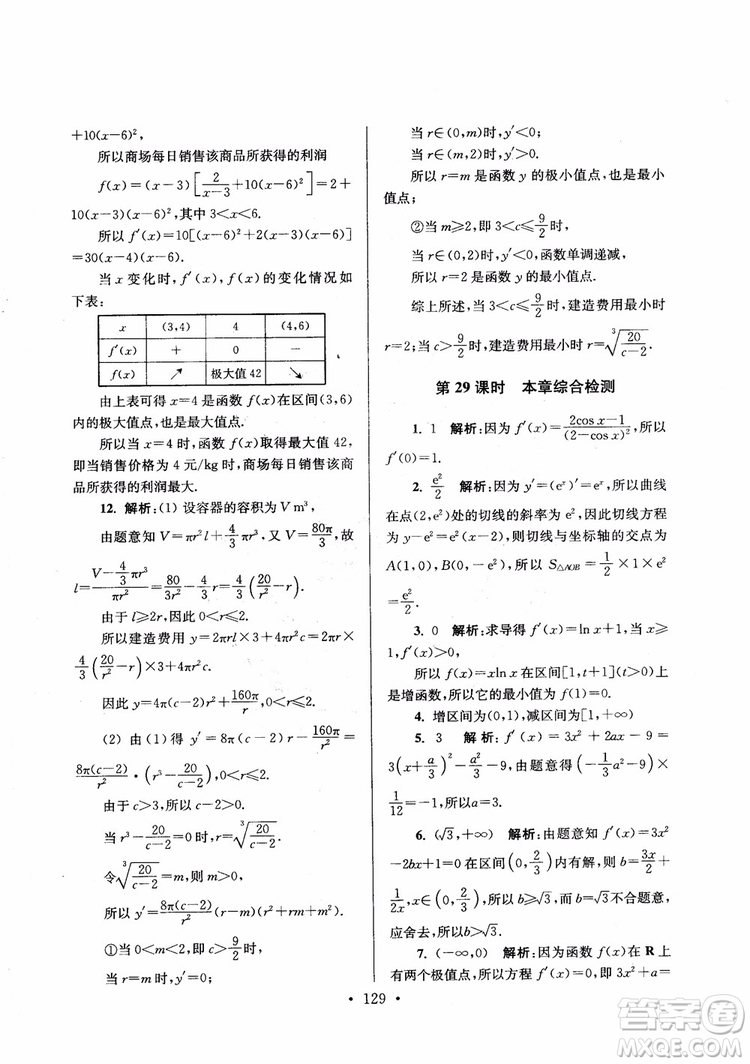 +10(x−6)²,
所以商场每日销售该商品所获得的利润
f(x)=(x−3)[2/(x−3)+10(x−6)²]=2+
10(x−3)(x−6)²,其中 3<x<6.
所以 f′(x)=10[(x−6)²+2(x−3)(x−6)]
=30(x−4)(x−6).
当 x 变化时,f′(x),f(x)的变化情况如
下表:
x (3,4) 4 (4,6)
f′(x) + 0 −
f(x) ↗ 极大值 42 ↘
由上表可得 x=4 是函数 f(x)在区间(3,6)
内的极大值点,也是最大值点.
所以当 x=4 时,函数 f(x)取得最大值 42,
即当销售价格为 4 元/kg 时,商场每日销售该商
品所获得的利润最大.
12. 解析:(1) 设容器的容积为 V m³,
由题意知 V=πr²l+4/3πr³,又 V=80π/3,故
l=(V−4/3πr³)/πr²=80/3r²−4/3r=4/3(20/r²−r).
由于 l≥2r,因此 0<r≤2.
所以建造费用 y=2πrl×3+4πr²c=2πr×
4/3(20/r²−r)×3+4πr²c.
因此 y=4π(c−2)r²+160π/r,0<r≤2.
(2) 由(1)得 y′=8π(c−2)r−160π/r²=
8π(c−2)/r²·(r³−20/(c−2)),0<r≤2.
由于 c>3,所以 c−2>0.
当 r³−20/(c−2)=0 时,r=∛(20/(c−2)).
令∛(20/(c−2))=m,则 m>0,
所以 y′=8π(c−2)/r²(r−m)(r²+rm+m²).
①当 0<m<2,即 c>9/2时,
当 r=m 时,y′=0;
当 r∈(0,m)时,y′<0;
当 r∈(m,2)时,y′>0.
所以 r=m 是函数 y 的极小值点,也是最小
值点;
②当 m≥2,即 3<c≤9/2时,
当 r∈(0,2)时,y′<0,函数单调递减,
所以 r=2 是函数 y 的最小值点.
综上所述,当 3<c≤9/2时,建造费用最小时
r=2;当 c>9/2时,建造费用最小时 r=∛(20/(c−2)).
第 29 课时 本章综合检测
1. 1 解析:因为 f′(x)=(2cos x−1)/(2−cos x)²,所以
f′(0)=1.
2. e²/2 解析:因为 y′=(eˣ)′=eˣ,所以曲线
在点(2,e²)处的切线的斜率为 e²,因此切线方程
为 y=e²x−e²,则切线与坐标轴的交点为
A(1,0),B(0,−e²).所以 S△AOB=1/2×1×e²
=e²/2.
3. 0 解析:求导得 f′(x)=ln x+1,当 x≥
1 时,f′(x)>0,
所以 f(x)=xln x 在区间[1,t+1](t>0)上
是增函数,所以它的最小值为 f(1)=0.
4. 增区间为(0,1),减区间为[1,+∞)
5. 3 解析:f′(x)=3x²+2ax−9=
3(x+a/3)²−a²/3−9,由题意,得(−1/3a²−9)×
1/12=−1,所以 a=3.
6. (√3,+∞) 解析:由题意知 f′(x)=3x²
−2bx+1=0 在区间(0,2/3)内有解,则 b=3x/2+
1/2x,x∈(0,2/3),所以 b≥√3.当 b=√3时不合题意,
应舍去,所以 b>√3.
7. (−∞,0) 解析:因为函数 f(x)在 R 上
有两个极值点,所以方程 f′(x)=0,即 3x²+a=
• 129 •
答案圈
MXQE.COM